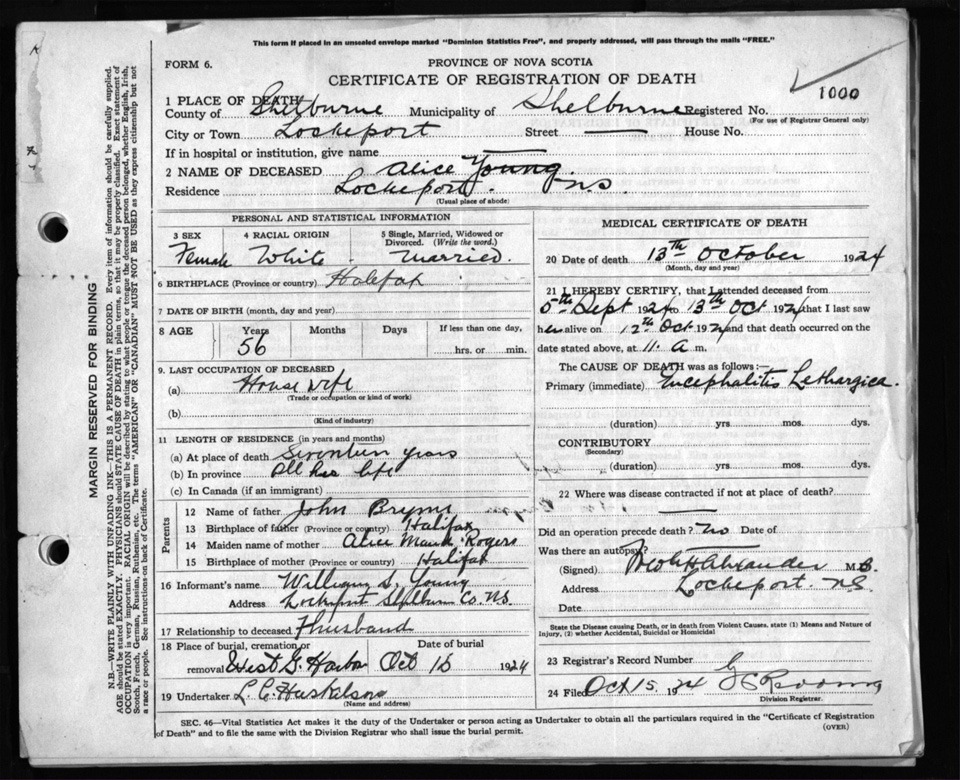 This form if placed in an unsealed envelope marked "Dominion Statistics Free", and properly addressed, will pass through the mails "FREE."
FORM 6.
PROVINCE OF NOVA SCOTIA
CERTIFICATE OF REGISTRATION OF DEATH
1000
1 PLACE OF DEATH
County of Shelburne Municipality of Shelburne Registered No.
(For use of Registrar General only)
City or Town Lockeport Street — House No.
If in hospital or institution, give name —
2 NAME OF DECEASED Alice Young.
Residence Lockeport. N.S.
(Usual place of abode)
PERSONAL AND STATISTICAL INFORMATION
3 SEX 4 RACIAL ORIGIN 5 Single, Married, Widowed or Divorced. (Write the word.)
Female White Married.
6 BIRTHPLACE (Province or country) Halifax
7 DATE OF BIRTH (month, day and year)
8 AGE Years Months Days If less than one day,
56 hrs. or min.
9. LAST OCCUPATION OF DECEASED
(a) House wife
(Trade or occupation or kind of work)
(b)
(Kind of industry)
11 LENGTH OF RESIDENCE (in years and months)
(a) At place of death Seventeen years
(b) In province All her life
(c) In Canada (if an immigrant)
Parents
12 Name of father John
13 Birthplace of father (Province or country) Halifax
14 Maiden name of mother Alice Maud Rogers
15 Birthplace of mother (Province or country) Halifax
16 Informant's name William S. Young
Address Lockeport Shelburne Co. N.S.
17 Relationship to deceased Husband
18 Place of burial, cremation or removal West G. Harbor Date of burial Oct 15 1924
19 Undertaker L. C.
(Name and address)
MEDICAL CERTIFICATE OF DEATH
20 Date of death 13th October 1924
(Month, day and year)
21 I HEREBY CERTIFY, that I attended deceased from
5th Sept 1924 to 13th Oct 1924 that I last saw
her alive on 12th Oct 1924 and that death occurred on
date stated above, at 11. a m.
The CAUSE OF DEATH was as follows:—
Primary (immediate) Encephalitis Lethargica.
(duration) yrs. mos. dys.
CONTRIBUTORY
(Secondary)
(duration) yrs. mos. dys.
22 Where was disease contracted if not at place of death?
—
Did an operation precede death? No Date of
Was there an autopsy? —
(Signed) M.D.
Address Lockeport. N.S.
Date
State the Disease causing Death, or in death from Violent Causes, state (1) Means and Nature of Injury, (2) whether Accidental, Suicidal or Homicidal
23 Registrar's Record Number
24 Filed Oct 15 1924
Division Registrar.
SEC. 46—Vital Statistics Act makes it the duty of the Undertaker or person acting as Undertaker to obtain all the particulars required in the "Certificate of Registration
of Death" and to file the same with the Division Registrar who shall issue the burial permit.
(OVER)
MARGIN RESERVED FOR BINDING
N.B.—WRITE PLAINLY WITH UNFADING INK—THIS IS A PERMANENT RECORD. Every item of information should be carefully supplied.
AGE should be stated EXACTLY. PHYSICIANS should STATE CAUSE OF DEATH in plain terms, so that it may be properly classified. Exact statement of
OCCUPATION is very important. RACIAL ORIGIN will be described by stating to what people or tongue the deceased person belonged, whether English, Irish,
Scotch, French, German, Russian, Ruthenian, etc. The terms "AMERICAN" OR "CANADIAN" MUST NOT BE USED as they express citizenship but not
a race or people. See instructions on back of Certificate.